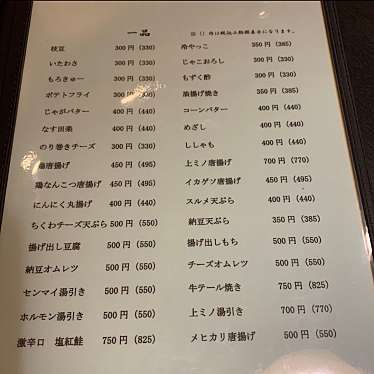 一品
※()内は税込み総額表示になります。
枝豆 300円(330)
いたわさ 300円(330)
もろきゅー 300円(330)
ポテトフライ 300円(330)
じゃがバター 400円(440)
なす田楽 400円(440)
のり巻きチーズ 300円(330)
唐揚げ 450円(495)
鶏なんこつ唐揚げ 450円(495)
にんにく丸揚げ 400円(440)
ちくわチーズ天ぷら 500円(550)
揚げ出し豆腐 500円(550)
納豆オムレツ 500円(550)
センマイ湯引き 500円(550)
ホルモン湯引き 500円(550)
激辛口 塩紅鮭 750円(825)
冷やっこ 350円(385)
じゃこおろし 300円(330)
もずく酢 300円(330)
油揚げ焼き 400円(440)
コーンバター 400円(440)
めざし 400円(440)
ししゃも 400円(440)
上ミノ唐揚げ 700円(770)
イカゲソ唐揚げ 450円(495)
スルメ天ぷら 400円(440)
納豆天ぷら 350円(385)
揚げ出しもち 500円(550)
チーズオムレツ 500円(550)
牛テール焼き 750円(825)
上ミノ湯引き 700円(770)
メヒカリ唐揚げ 500円(550)